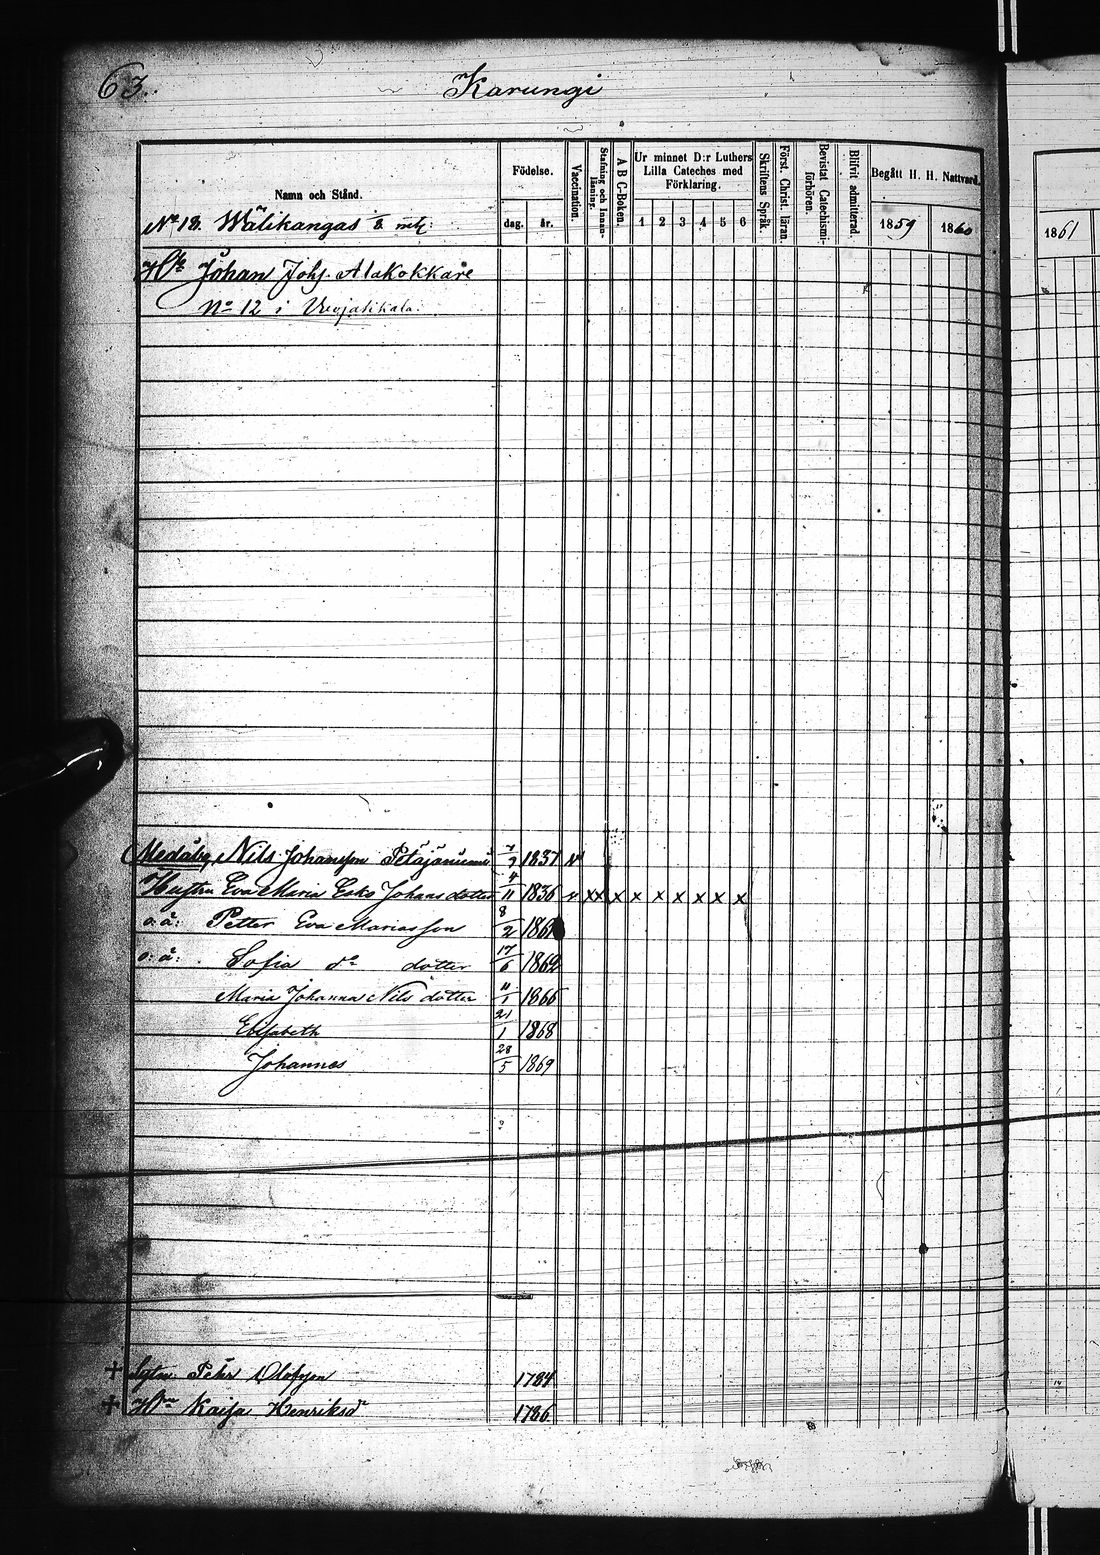 63.
Karungi
Namn och Stånd.
Födelse.
dag. år.
Vaccination.
Stafning och Innanläsning.
A B C-Boken.
Ur minnet D:r Luthers Lilla Cateches med Förklaring.
1 2 3 4 5 6
Skriftens Språk.
Först. Christ. läran.
Bevistat Catechismiförhören.
Blifvit admitterad.
Begått H. H. Nattvard.
1859 1860
1861
No 18. Wälikangas
Johan Johs. Alakokkare
No 12 i
Nils Johansson 1837 v
Hustru Eva Maria Esko Johans dotter 4/11 1836 v x x x x x x x x x
o.ä: Petter Eva Mariasson 8/2
o: ä: Sofia do dotter 17/6 1862
Maria Johanna Nils dotter 11/1 1866
Elisabeth 21/1 1868
Johannes 28/5 1869
+ Pehr Olofsson 1784
+ Kaisa Henriksdr 1786